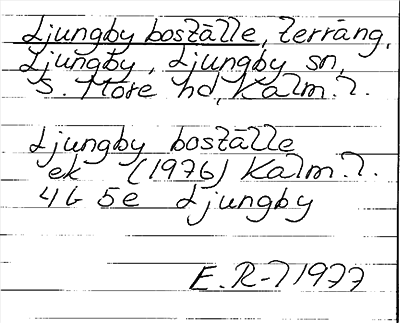 Ljungby boställe, terräng,
Ljungby, Ljungby sn,
S. Möre hd, Kalm. l.
Ljungby boställe
ek (1976) Kalm. l.
4G 5e Ljungby
E. R-l 1977